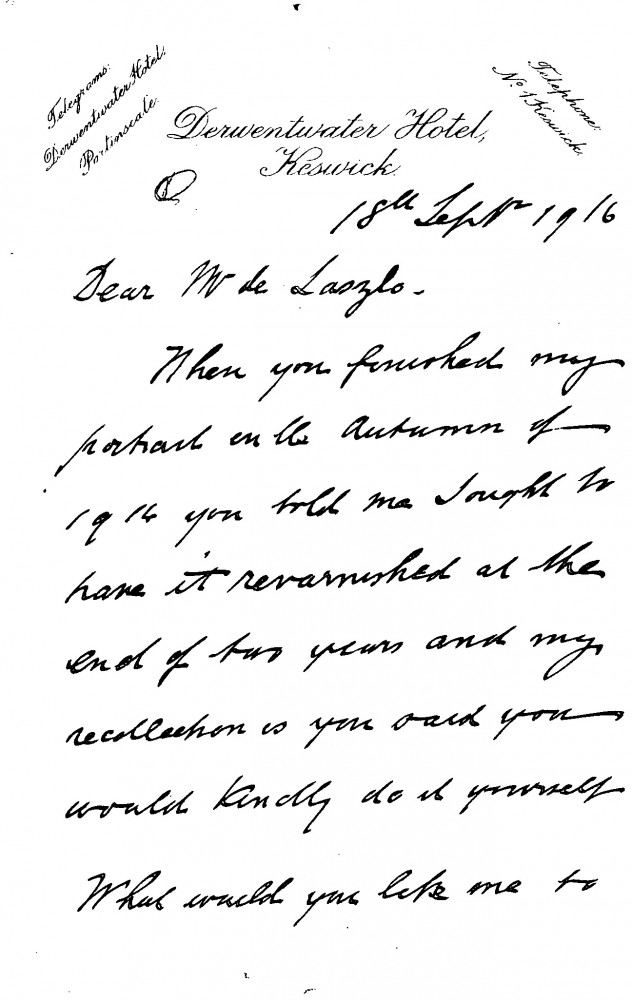 Telegrams:
Derwentwater Hotel,
Portinscale.
Telephone:
No. 1 Keswick.
Derwentwater Hotel,
Keswick.
18th Septr 1916
Dear Mr de Laszlo.
When you finished my
portrait in the Autumn of
1914 you told me I ought to
have it revarnished at the
end of two years and my
recollection is you said you
would kindly do it yourself
What would you like me to